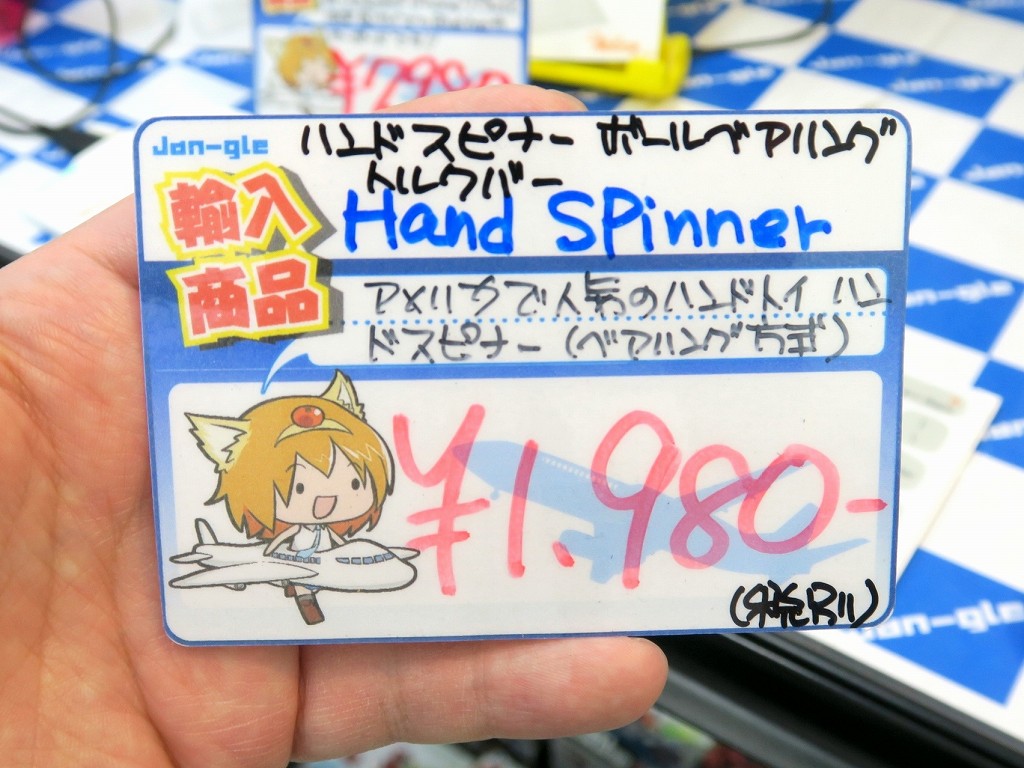 ¥7,980
Jan-gle
ハンドスピナー ボールベアリング
トルクバー
輸入
商品
Hand Spinner
アメリカで人気のハンドトイ ハン
ドスピナー(ベアリング方式)
¥1.980-
(税別)
Jan-gle
Jan-gle